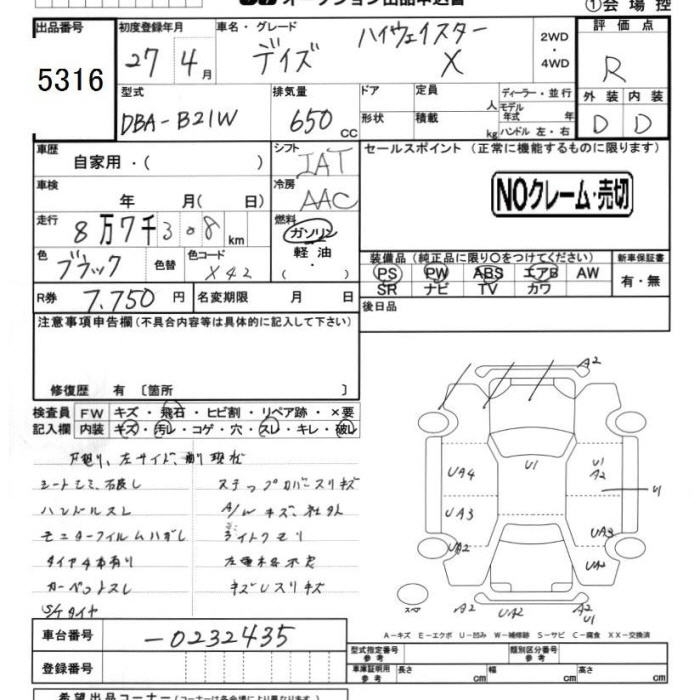 オークション出品申込書
①会場控
出品番号 初度登録年月 車名・グレード 2WD・4WD 評価点
5316 27 4月 デイズ ハイウェイスター X R
型式 排気量 ドア 定員 人 ディーラー・並行 外装 内装
DBA-B21W 650 CC 形状 積載 kg モデル年式 年 ハンドル 左・右 D D
車歴 自家用・( ) シフト IAT セールスポイント (正常に機能するものに限ります)
車検 年 月( 日) 冷房 AAC NOクレーム・売切
走行 8万7千308km 燃料 ガソリン 軽油 ( ・ )
色 ブラック 色替 色コード X42 装備品 (純正品に限り○をつけてください) 新車保証書
PS PW ABS エアB AW 有・無
SR ナビ TV カワ
R券 7.750円 名変期限 月 日 後日品
注意事項申告欄(不具合内容等は具体的に記入して下さい)
修復歴 有 〔箇所 〕
検査員 FW キズ・飛石・ヒビ割・リペア跡・×要
記入欄 内装 キズ・汚レ・コゲ・穴・スレ・キレ・破レ
ステップカバースリキズ
ハンドルスレ A/Wキズ、社外
モニターフィルムハガレ ライトクモリ
タイヤ4本有り
カーペットスレ キズレスリキズ
S/Tタイヤ
A2
UA4 U1 U1 A2
U1
UA3 UA3
UA2 UA2
スペア A2 UA2 A2 U1
A-キズ E-エクボ U-凹み W-補修跡 S-サビ C-腐食 XX-交換済
車台番号 -0232435
型式指定番号 参考 類別区分番号 参考
登録番号 車庫証明用 参考 長さ cm 幅 cm 高さ cm
希望出品コーナー(コーナーは各会場により異なります)